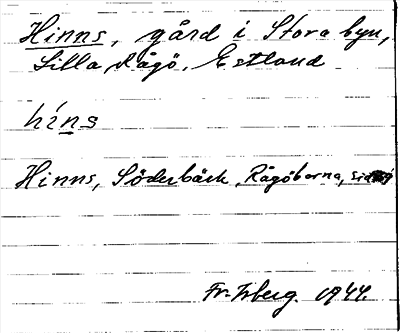 Hinns, gård i Stora byn,
Lilla Rågö, Estland
hìns
Hinns, Söderbäck, Rågöborna,
Fr. Isberg. 1944.